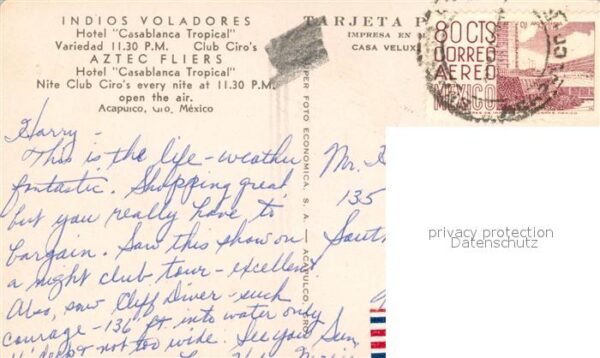 INDIOS VOLADORES
Hotel "Casablanca Tropical"
Variedad 11.30 P.M. Club Ciro's
AZTEC FLIERS
Hotel "Casablanca Tropical"
Nite Club Ciro's every nite at 11.30 P.M.
open the air.
Acapulco, Gro, México
Harry -
This is the life - weather
fantastic. Shopping great
but you really have to
bargain. Saw this show on
a night club tour - excellent
Also, saw Cliff Diver - such
courage - 136 ft into water only
deep & not too wide. See you Sun,
TARJETA P
IMPRESA EN
CASA VELUX
PER FOTO ECONOMICA, S. A. - ACAPULCO, GRO.
80 CTS
CORREO
AEREO
MEXICO
Mr.
135
South
privacy protection
Datenschutz